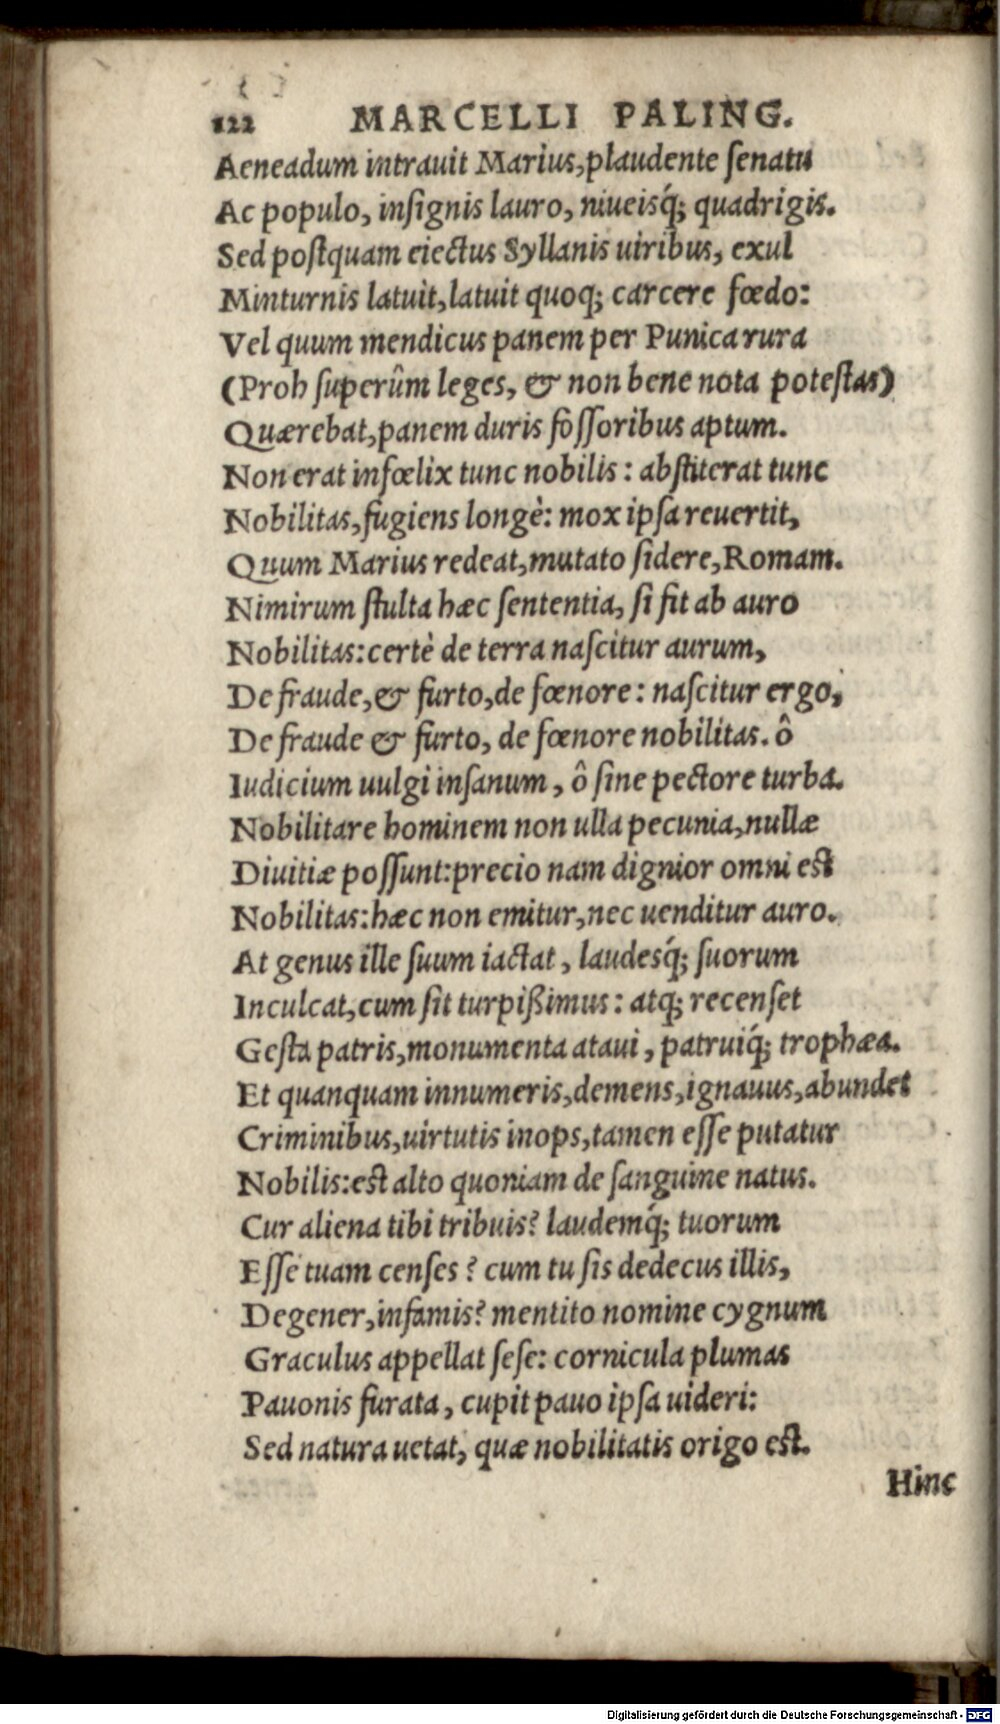 122 MARCELLI PALING.
Aeneadum intrauit Marius, plaudente ſenatu
Ac populo, inſignis lauro, niueisq́; quadrigis.
Sed poſtquam eiectus Syllanis uiribus, exul
Minturnis latuit, latuit quoq; carcere fœdo:
Vel quum mendicus panem per Punica rura
(Proh ſuperûm leges, & non bene nota poteſtas)
Quærebat, panem duris foſſoribus aptum.
Non erat infœlix tunc nobilis: abſtiterat tunc
Nobilitas, fugiens longè: mox ipſa reuertit,
Quum Marius redeat, mutato ſidere, Romam.
Nimirum ſtulta hæc ſententia, ſi fit ab auro
Nobilitas: certè de terra naſcitur aurum,
De fraude, & furto, de fœnore: naſcitur ergo,
De fraude & furto, de fœnore nobilitas. ô
Iudicium uulgi inſanum, ô ſine pectore turba.
Nobilitare hominem non ulla pecunia, nullæ
Diuitiæ poſſunt: precio nam dignior omni eſt
Nobilitas: hæc non emitur, nec uenditur auro.
At genus ille ſuum iactat, laudesq́; ſuorum
Inculcat, cum ſit turpißimus: atq; recenſet
Geſta patris, monumenta ataui, patruiq́; trophæa.
Et quanquam innumeris, demens, ignauus, abundet
Criminibus, uirtutis inops, tamen eſſe putatur
Nobilis: eſt alto quoniam de ſanguine natus.
Cur aliena tibi tribuis? laudemq́; tuorum
Eſſe tuam cenſes? cum tu ſis dedecus illis,
Degener, infamis? mentito nomine cygnum
Graculus appellat ſeſe: cornicula plumas
Pauonis furata, cupit pauo ipſa uideri:
Sed natura uetat, quæ nobilitatis origo eſt.
Hinc
Digitalisierung gefördert durch die Deutsche Forschungsgemeinschaft - DFG